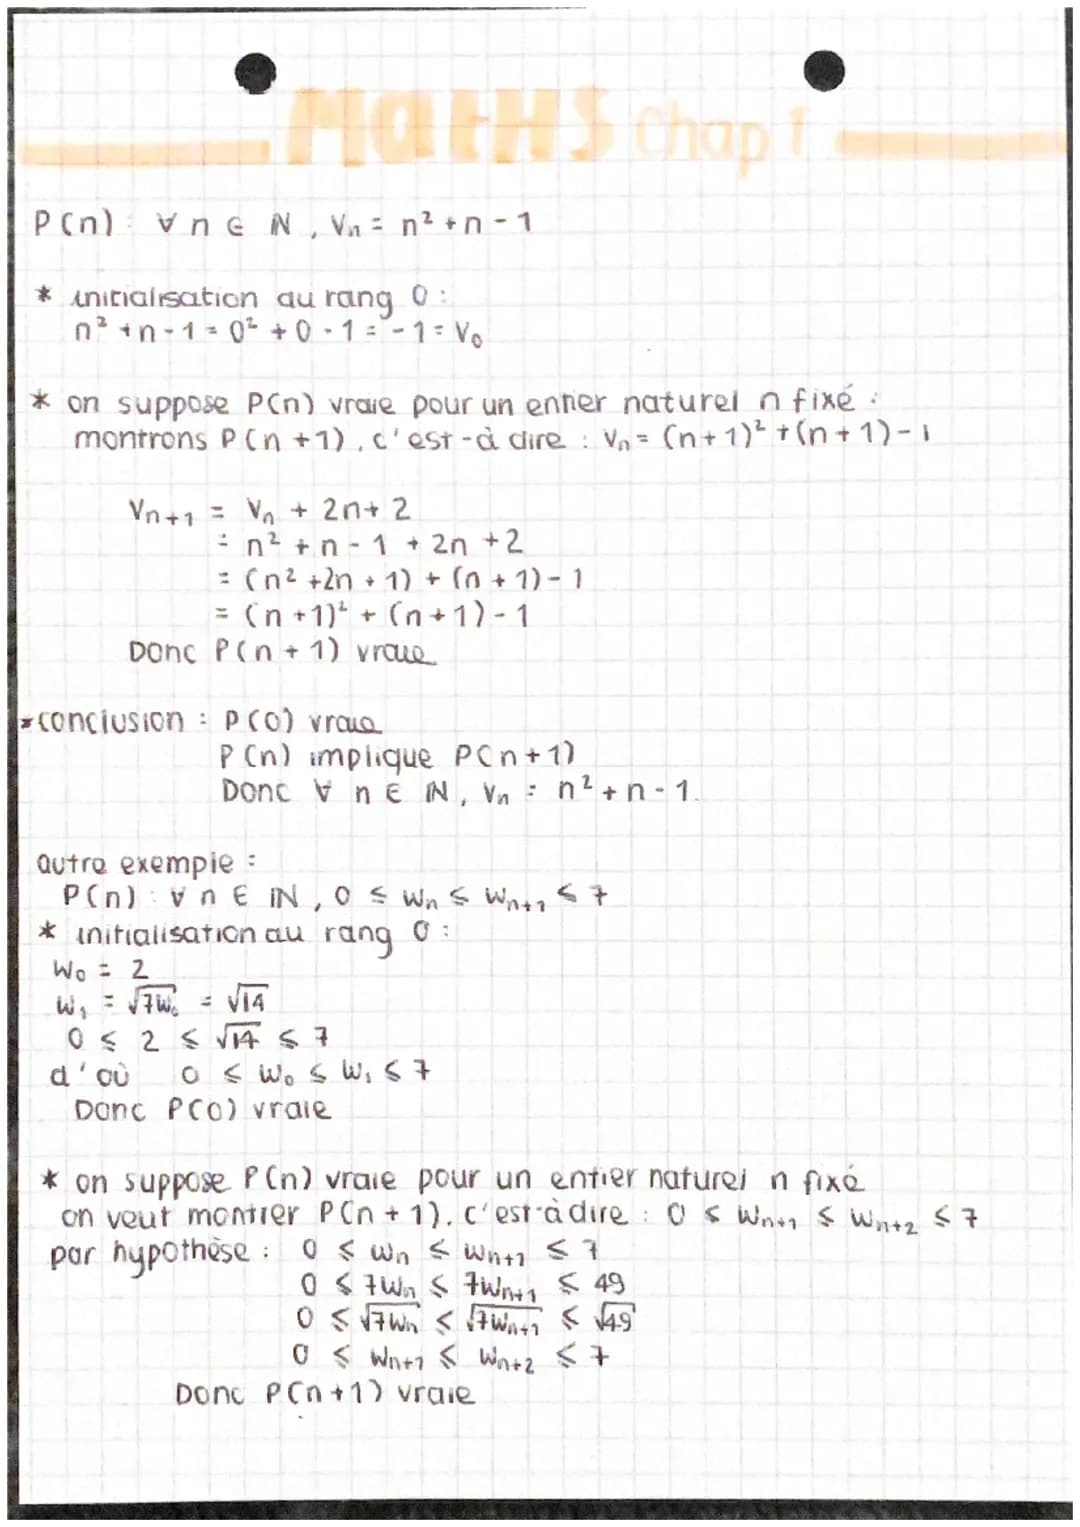 MatHS chap 1
P(n) : ∀ n ∈ ℕ, Vn = n² + n - 1
* initialisation au rang 0 :
n² + n - 1 = 0² + 0 - 1 = - 1 = V₀
* on suppose P(n) vraie pour un entier naturel n fixé :
montrons P(n + 1), c'est-à dire : Vn = (n + 1)² + (n + 1) - 1
Vn+1 = Vn + 2n + 2
= n² + n - 1 + 2n + 2
= (n² + 2n + 1) + (n + 1) - 1
= (n + 1)² + (n + 1) - 1
Donc P(n + 1) vraie
* conclusion : P(0) vraie
P(n) implique P(n + 1)
Donc ∀ n ∈ ℕ, Vn = n² + n - 1.
autre exemple :
P(n) : ∀ n ∈ ℕ, 0 ⩽ Wn ⩽ Wn+1 ⩽ 7
* initialisation au rang 0 :
W₀ = 2
W₁ = √7W₀ = √14
0 ⩽ 2 ⩽ √14 ⩽ 7
d'où 0 ⩽ W₀ ⩽ W₁ ⩽ 7
Donc P(0) vraie
* on suppose P(n) vraie pour un entier naturel n fixé
on veut montrer P(n + 1), c'est-à dire : 0 ⩽ Wn+1 ⩽ Wn+2 ⩽ 7
par hypothèse : 0 ⩽ Wn ⩽ Wn+1 ⩽ 7
0 ⩽ 7Wn ⩽ 7Wn+1 ⩽ 49
0 ⩽ √7Wn ⩽ √7Wn+1 ⩽ √49
0 ⩽ Wn+1 ⩽ Wn+2 ⩽ 7
Donc P(n + 1) vraie